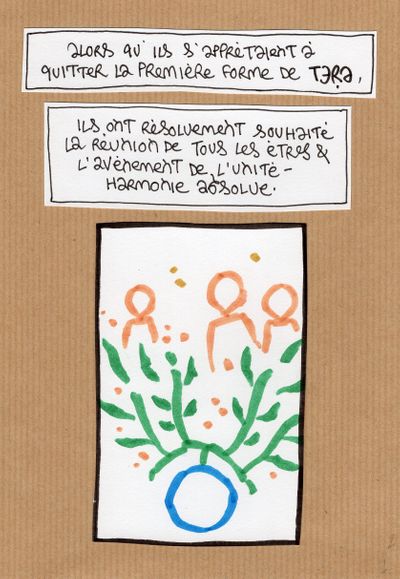 Alors qu'ils s'apprêtaient à
quitter la première forme de TẠRẠ,
ils ont résolument souhaité
la réunion de tous les êtres &
l'avènement de l'unité-
harmonie absolue.